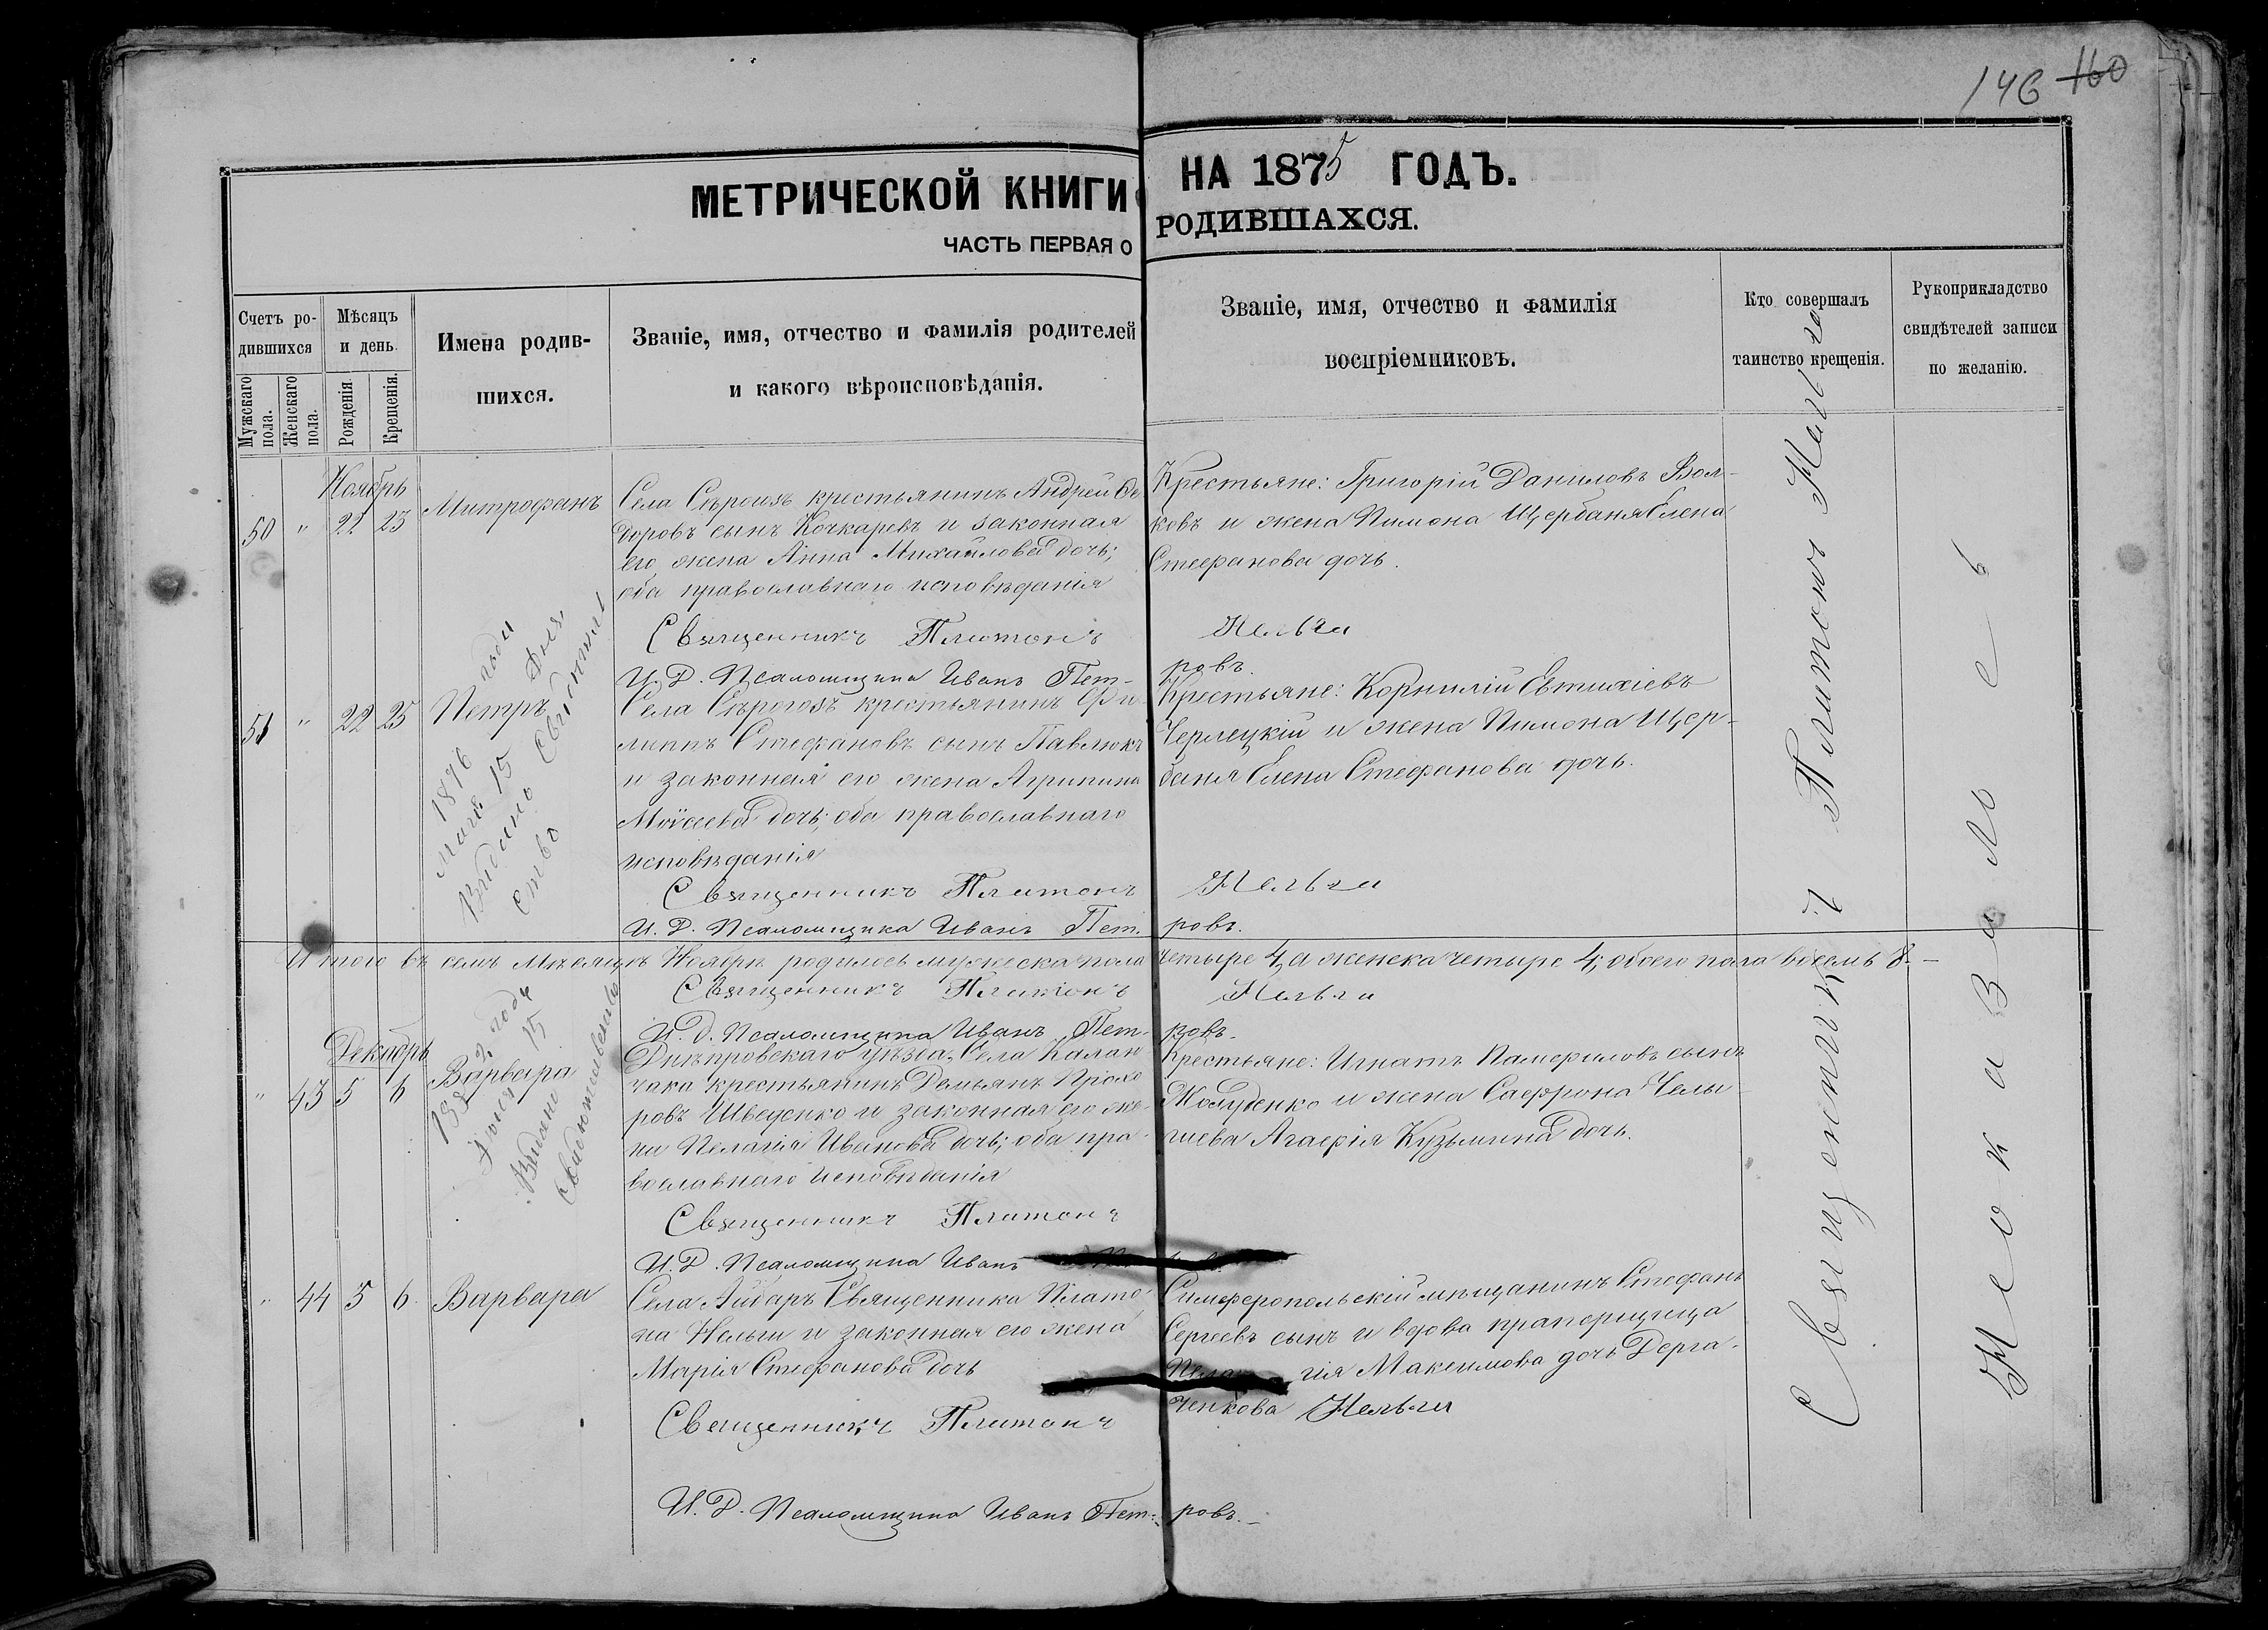 146 160
МЕТРИЧЕСКОЙ КНИГИ НА 1875 ГОДЪ.
ЧАСТЬ ПЕРВАЯ О РОДИВШАХСЯ.
Счетъ родившихся
Мужскаго пола.
Женскаго пола.
Мѣсяцъ и день.
Рожденія.
Крещенія.
Имена родив-
шихся.
Званіе, имя, отчество и фамилія родителей
и какого вѣроисповѣданія.
Званіе, имя, отчество и фамилія
воспріемниковъ.
Кто совершалъ
таинство крещенія.
Рукоприкладство
свидѣтелей записи
по желанію.
Ноябрь
50 " 22 23 Митрофанъ
Села Сѣрогозъ крестьянинъ Андрей Ѳе
доровъ сынъ Кочкаревъ и законная
его жена Анна Михайлова дочь;
оба православнаго исповѣданія
Крестьяне: Григорій Даниловъ Вол-
ковъ и жена Пимона Щербаня Елена
Стефанова дочь.
Священникъ Платонъ Нельга
И. Д. Псаломщика Иванъ Пет-
ровъ.
51 " 22 25 Петръ
1876 года
Мая 15 дня
Видано Свѣдѣтель
ство
Села Сѣрогозъ крестьянинъ Фи
липпъ Стефановъ сынъ Павлюкъ
и законная его жена Агрипина
Моисеева дочь; оба православнаго
исповѣданія
Крестьяне: Корнилій Евтихіевъ
Черлецкій и жена Пимона Щер-
баня Елена Стефанова дочь.
Священникъ Платонъ Нельга
И. Д. Псаломщика Иванъ Пет-
ровъ.
Итого въ семъ Мѣсяцѣ Ноябрѣ родилось мужеска пола четыре 4, а женска четыре 4, обоего пола восемь 8.
Священникъ Платонъ Нельга
И. Д. Псаломщика Иванъ Пет-
ровъ.
Декабрь
" 43 5 6 Варвара
года
15
Видано
Свидетельство
Днѣпровскаго уѣзда, Села Калан
чака крестьянинъ Демьянъ Прохо
ровъ Шведенко и законная его же-
на Пелагія Иванова дочь; оба пра-
вославнаго исповѣданія
Крестьяне: Игнатъ Памфиловъ сынъ
Жолуденко и жена Сафрона Челы-
гиева Агафія Кузьмина дочь.
Священникъ Платонъ
И. Д. Псаломщика Иванъ
" 44 5 6 Варвара
Села Айдаръ Священника Плато-
на Нельги и законная его жена
Марія Стефанова дочь
Симферопольскій мѣщанинъ Стефанъ
Сергеевъ сынъ и вдова прапорщица
Пелагія Максимова дочь Дерга-
ченкова
Священникъ Платонъ Нельга
И. Д. Псаломщика Иванъ Пет-
ровъ.
Священникъ Платонъ Нельга
Неокавалось